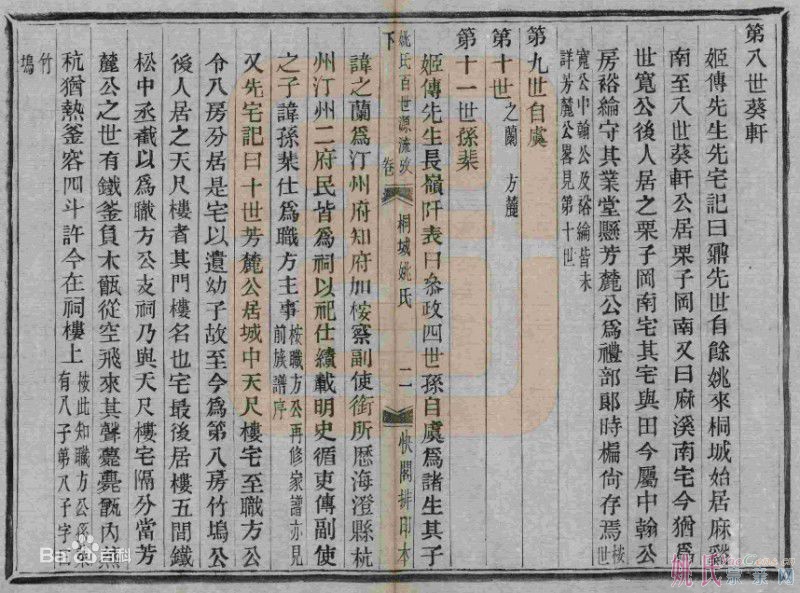 第八世葵軒
姬傳先生先宅記曰鼐先世自餘姚來桐城始居麻溪
南至八世葵軒公居栗子岡南又曰麻溪南宅今猶爲
世寬公後人居之栗子岡南宅其宅與田今屬中翰公
房裕綸守其業堂懸芳麓公爲禮部郎時楄尙存焉
桉世寬公中翰公及裕綸皆未
詳芳麓公畧見第十世
第九世自虞
第十世
之蘭 方麓
第十一世孫棐
姬傳先生長嶺阡表曰參政四世孫自虞爲諸生其子
姚氏百世源流攷 卷下
桐城姚氏
二
快閣排印本
諱之蘭爲汀州府知府加桉察副使銜所歷海澄縣杭
州汀州二府民皆爲祠以祀仕績載明史循吏傳副使
之子諱孫棐仕爲職方主事
桉職方公再修家譜亦見
前族譜序
又先宅記曰十世芳麓公居城中天尺樓宅至職方公
令八房分居是宅以遺幼子故至今爲第八房竹塢公
後人居之天尺樓者其門樓名也宅最後居樓五間鐵
松中丞截以爲職方公支祠乃與天尺樓宅隔分當芳
麓公之世有鐵釜負木甑從空飛來其聲甍甍甑內
秔猶熱釜容四斗許今在祠樓上
桉此知職方公
有八子第八子字
竹
塢
Bai 百科
姚氏